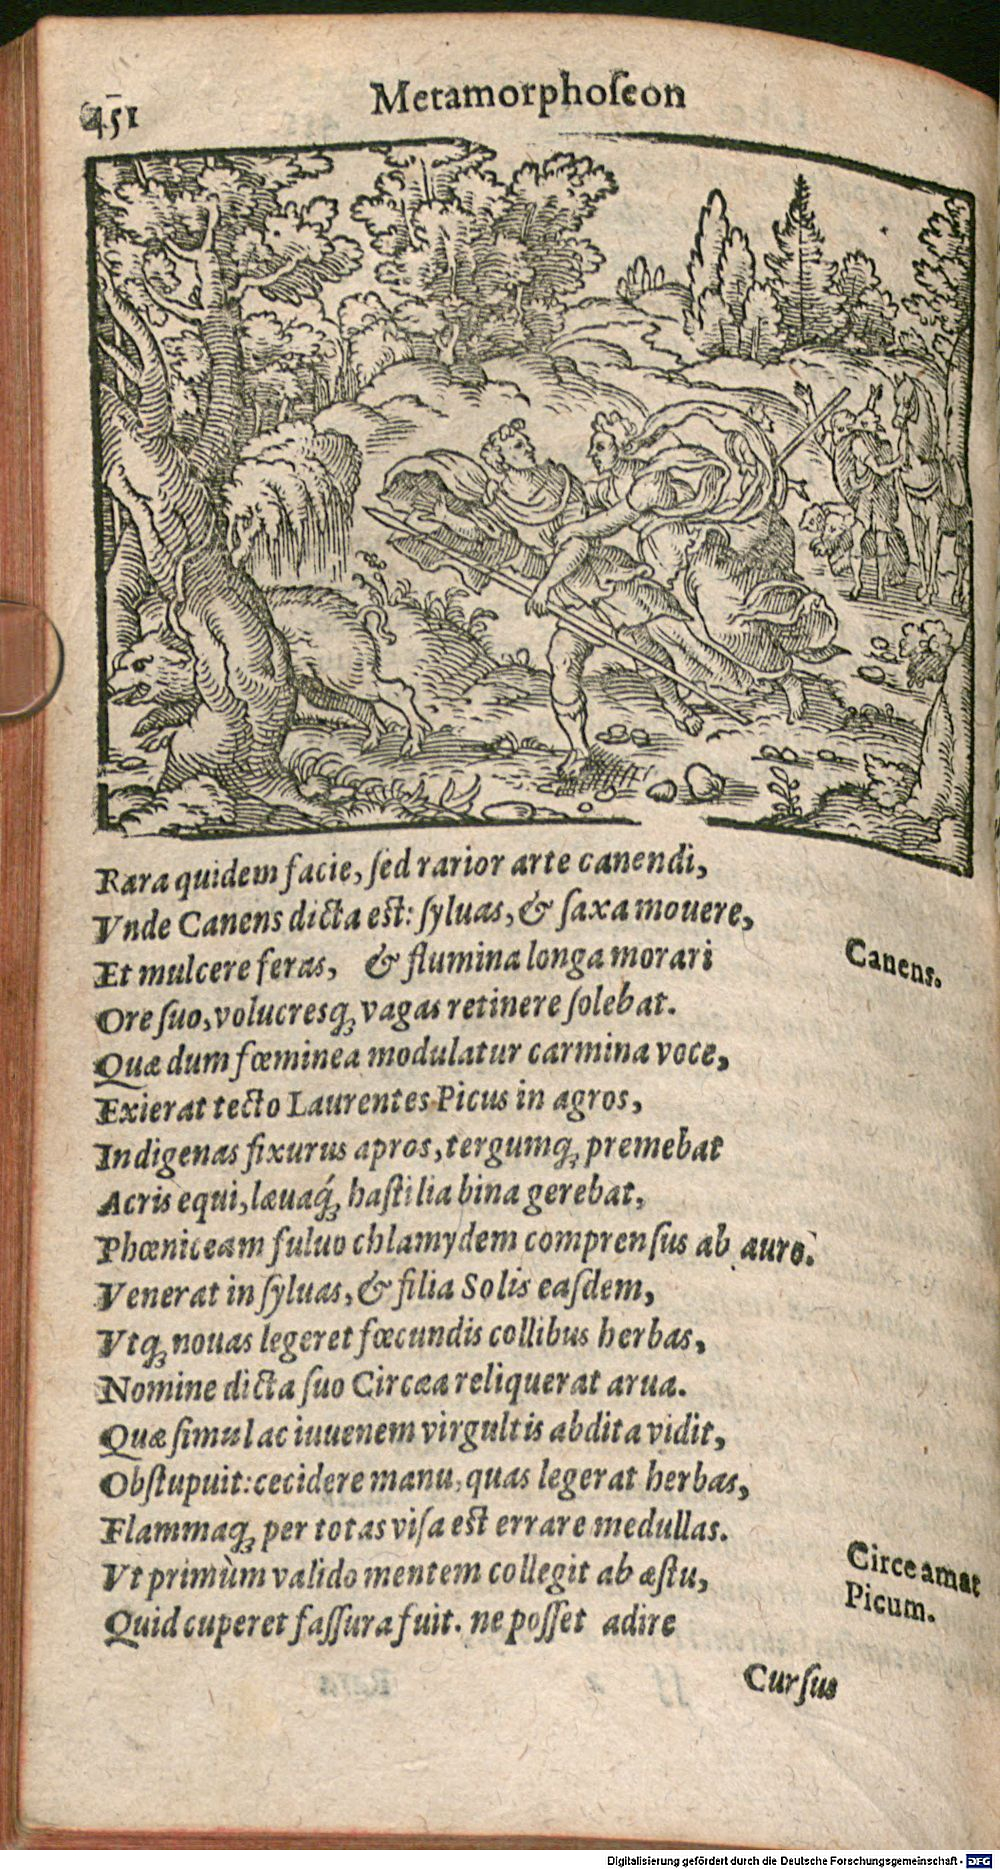 451
Metamorphoſeon
Rara quidem facie, ſed rarior arte canendi,
Vnde Canens dicta eſt: ſyluas, & ſaxa mouere,
Et mulcere feras, & flumina longa morari
Canens.
Ore ſuo, volucresq́ꝫ vagas retinere ſolebat.
Quæ dum fœminea modulatur carmina voce,
Exierat tecto Laurentes Picus in agros,
Indigenas fixurus apros, tergumqꝫ premebat
Acris equi, læuaq́ꝫ haſtilia bina gerebat,
Phœniceam fuluo chlamydem comprenſus ab auro.
Venerat in ſyluas, & filia Solis eaſdem,
Vtqꝫ nouas legeret fœcundis collibus herbas,
Nomine dicta ſuo Circæa reliquerat arua.
Quæ ſimul ac iuuenem virgultis abdita vidit,
Obſtupuit: cecidere manu, quas legerat herbas,
Flammaqꝫ per totas viſa eſt errare medullas.
Vt primùm valido mentem collegit ab æſtu,
Circe amat
Picum.
Quid cuperet faſſura fuit. ne poſſet adire
Curſus
Digitalisierung gefördert durch die Deutsche Forschungsgemeinschaft - DFG